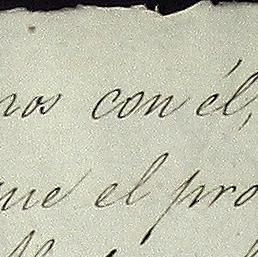 nos con él,
que el pro